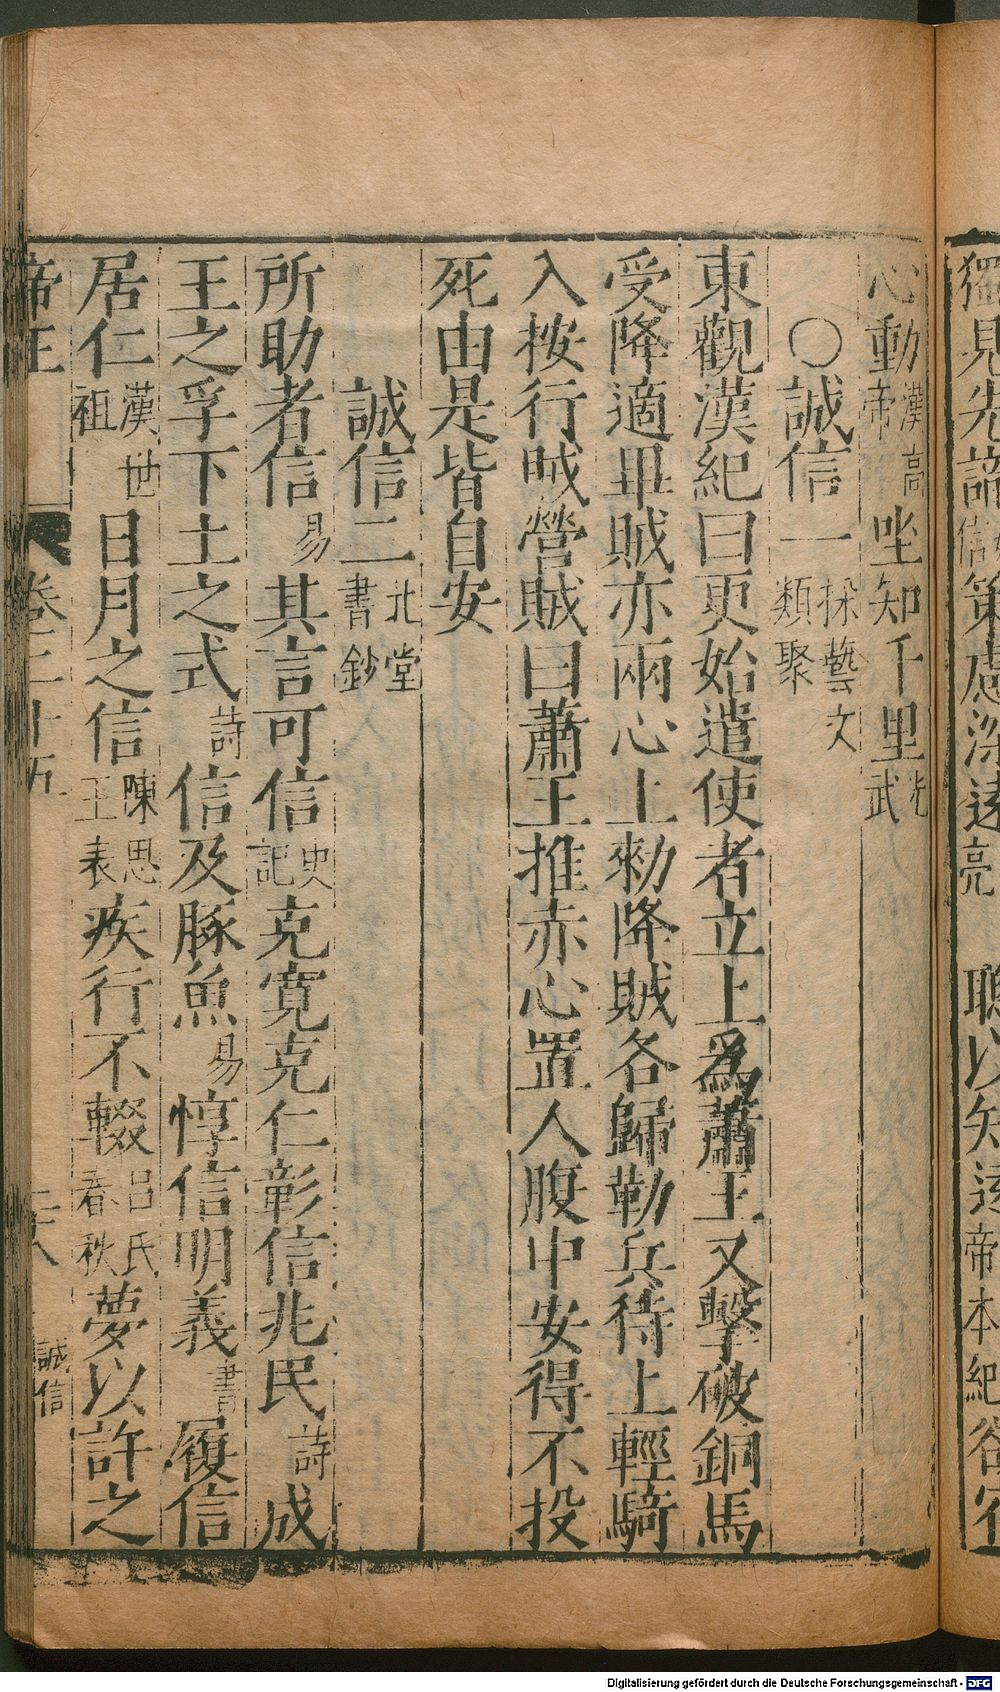 獨見先諦信策慮深遠亮 聰以知遠帝本紀
心動漢高帝坐知千里光武
〇誠信一採藝文類聚
東觀漢紀曰更始遣使者立上爲蕭王又擊破銅馬
受降適畢賊亦兩心上勑降賊各歸勒兵待上輕騎
入按行賊營賊曰蕭王推赤心置人腹中安得不投
死由是皆自安
誠信二北堂書鈔
所助者信易其言可信史記克寬克仁彰信兆民詩成
王之孚下土之式詩信及豚魚易惇信明義書履信
居仁漢世祖日月之信陳思王表疾行不輟呂氏春秋夢以許之
帝王 卷三十五 二十八 誠信
Digitalisierung gefördert durch die Deutsche Forschungsgemeinschaft - DFG